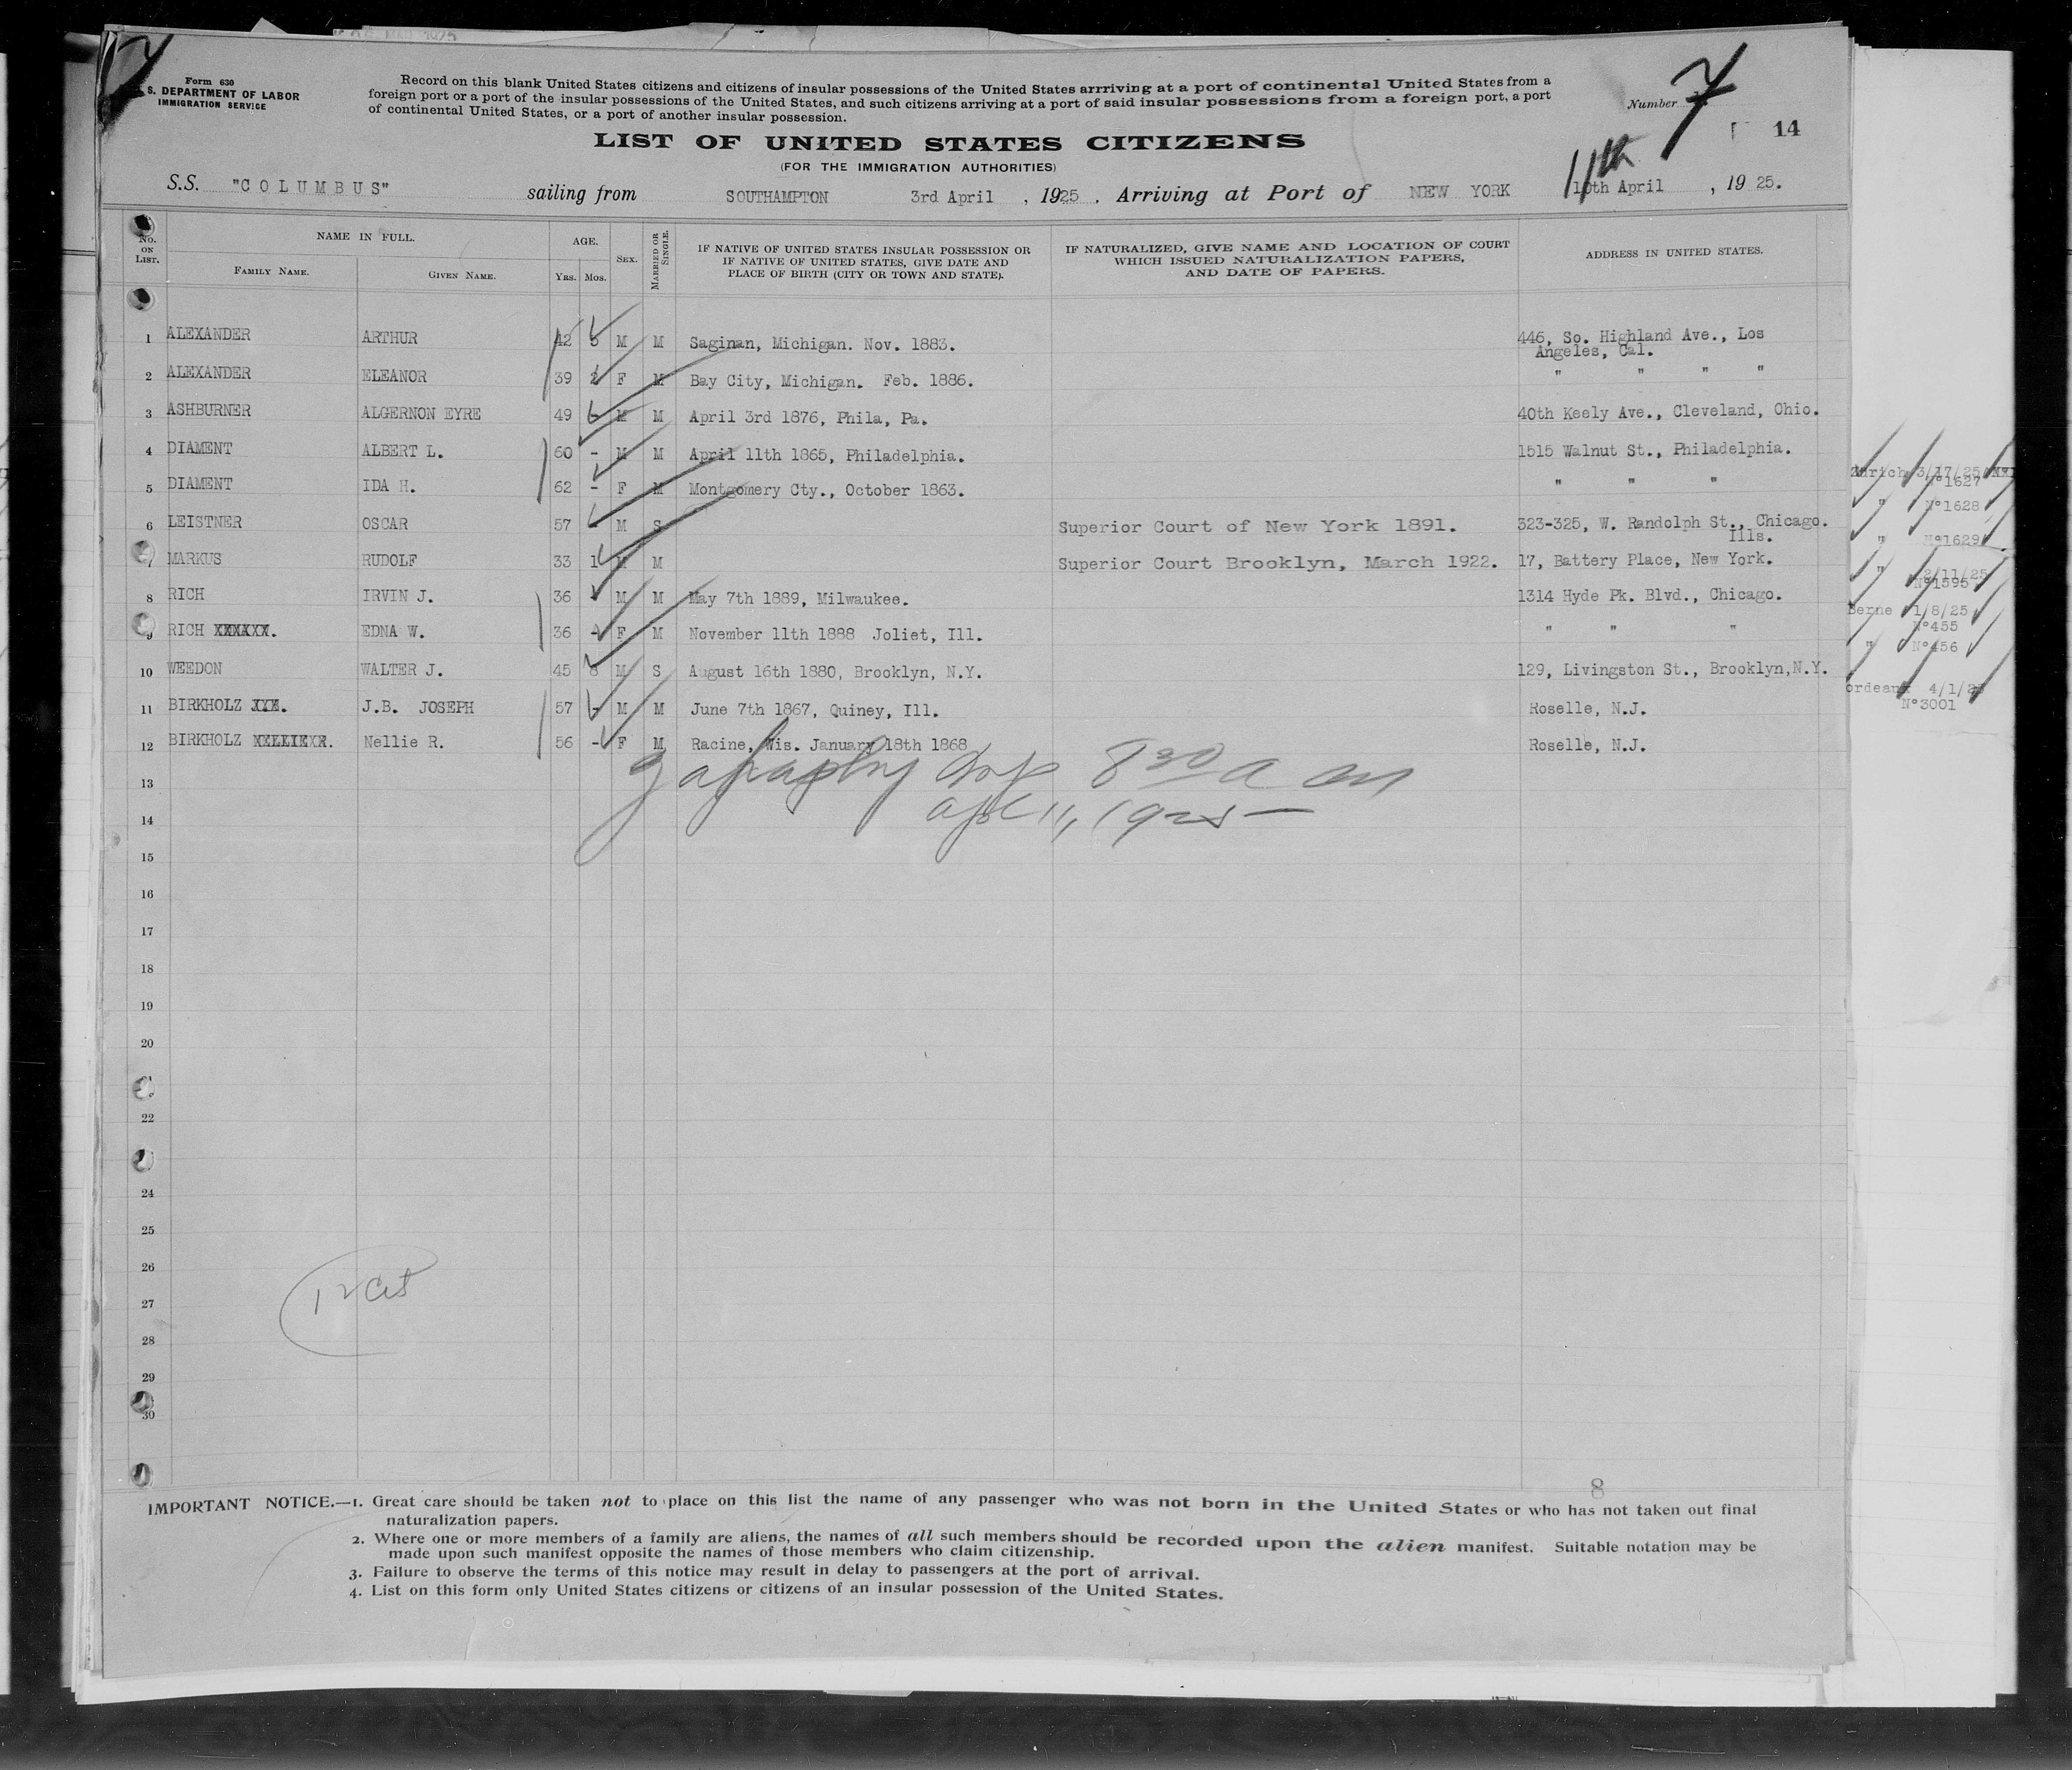 Form 630
S. DEPARTMENT OF LABOR
IMMIGRATION SERVICE
Record on this blank United States citizens and citizens of insular possessions of the United States arrriving at a port of continental United States from a
foreign port or a port of the insular possessions of the United States, and such citizens arriving at a port of said insular possessions from a foreign port, a port
of continental United States, or a port of another insular possession.
Number 7
14
LIST OF UNITED STATES CITIZENS
(FOR THE IMMIGRATION AUTHORITIES)
11th
S.S. "COLUMBUS" sailing from SOUTHAMPTON 3rd April, 1925. Arriving at Port of NEW YORK 10th April, 1925.
No. ON LIST. NAME IN FULL. FAMILY NAME. GIVEN NAME. AGE. YRS. MOS. SEX. MARRIED OR SINGLE. IF NATIVE OF UNITED STATES INSULAR POSSESSION OR IF NATIVE OF UNITED STATES, GIVE DATE AND PLACE OF BIRTH (CITY OR TOWN AND STATE). IF NATURALIZED, GIVE NAME AND LOCATION OF COURT WHICH ISSUED NATURALIZATION PAPERS, AND DATE OF PAPERS. ADDRESS IN UNITED STATES.
1 ALEXANDER ARTHUR 42 5 M M Saginan, Michigan. Nov. 1883. 446, So. Highland Ave., Los
Angeles, Cal.
2 ALEXANDER ELEANOR 39 2 F M Bay City, Michigan. Feb. 1886. " " " "
3 ASHBURNER ALGERNON EYRE 49 - M M April 3rd 1876, Phila, Pa. 40th Keely Ave., Cleveland, Ohio.
4 DIAMENT ALBERT L. 60 - M M April 11th 1865, Philadelphia. 1515 Walnut St., Philadelphia.
5 DIAMENT IDA H. 62 - F M Montgomery Cty., October 1863. " " "
6 LEISTNER OSCAR 57 M S Superior Court of New York 1891. 323-325, W. Randolph St., Chicago.
Ills.
7 MARKUS RUDOLF 33 1 M M Superior Court Brooklyn, March 1922. 17, Battery Place, New York.
8 RICH IRVIN J. 36 M M May 7th 1889, Milwaukee. 1314 Hyde Pk. Blvd., Chicago.
9 RICH XXXXXX. EDNA W. 36 F M November 11th 1888 Joliet, Ill. " " "
10 WEEDON WALTER J. 45 8 M S August 16th 1880, Brooklyn, N.Y. 129, Livingston St., Brooklyn,N.Y.
11 BIRKHOLZ XXX. J.B. JOSEPH 57 - M M June 7th 1867, Quiney, Ill. Roselle, N.J.
12 BIRKHOLZ Nellie R. 56 - F M Racine, Wis. January 18th 1868 Roselle, N.J.
13
14
15
16
17
18
19
20
22
24
25
26
27
28
29
30
8 30 a m
11, 1925
Zurich 3/17/25
N°1627
" N°1628
" N°1629
" 2/11/25
N°1595
Berne 1/8/25
N°455
" N°456
ordeaux 4/1/25
N°3001
8
IMPORTANT NOTICE.—1. Great care should be taken not to place on this list the name of any passenger who was not born in the United States or who has not taken out final
naturalization papers.
2. Where one or more members of a family are aliens, the names of all such members should be recorded upon the alien manifest. Suitable notation may be
made upon such manifest opposite the names of those members who claim citizenship.
3. Failure to observe the terms of this notice may result in delay to passengers at the port of arrival.
4. List on this form only United States citizens or citizens of an insular possession of the United States.